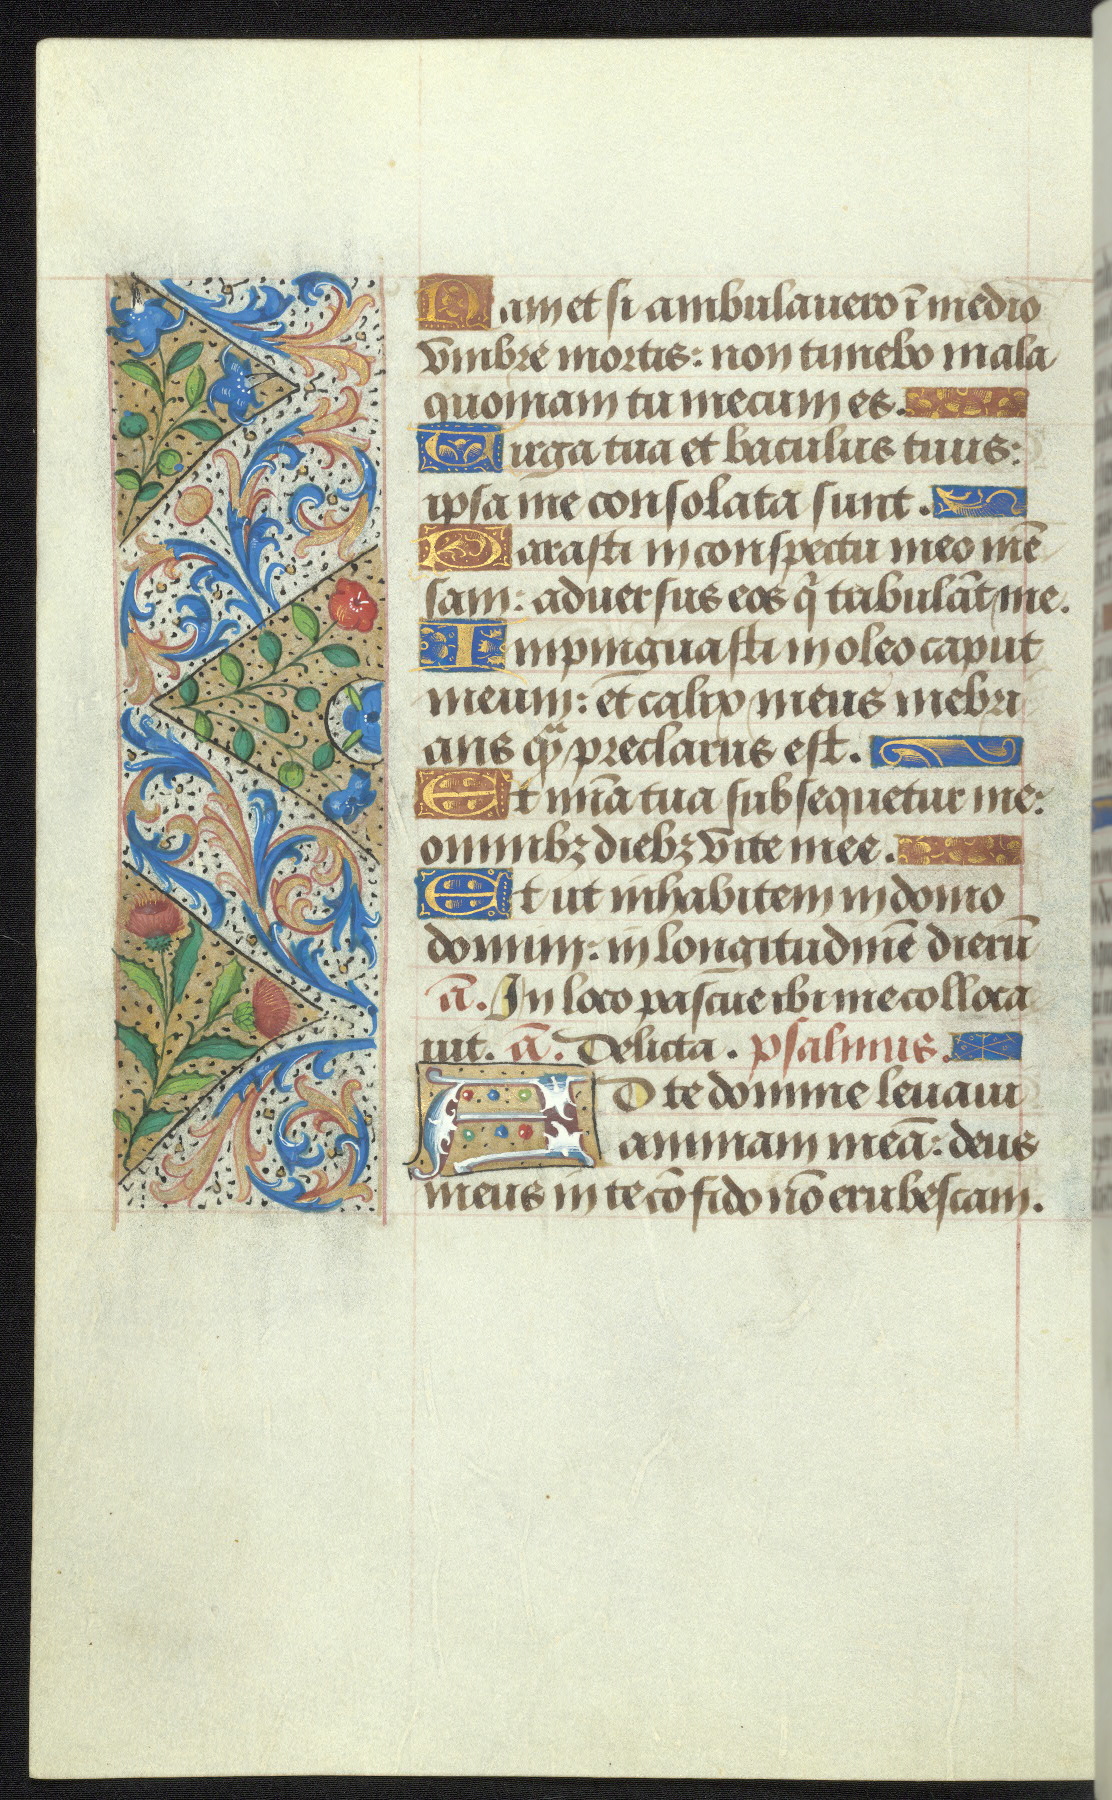 Nam et si ambulauero ī medio
vmbre mortis: non timebo mala
quoniam tu mecum es.
Uirga tua et baculus tuus:
ipsa me consolata sunt.
Parasti in conspectu meo mē
sam: aduersus eos q̄ tribulāt me.
Impinguasti in oleo caput
meum: et calix meus inebri
ans q̄ preclarus est.
Et mīa tua subsequetur me:
omnibꝫ diebꝫ vite mee.
Et ut inhabitem in domo
domini: in longitudinē dierū
ā. In loco pascue ibi me colloca
uit. ā. Delicta. psalmus.
AD te domine leuaui
animam meā: deus
meus in te cōfido nō erubescam.